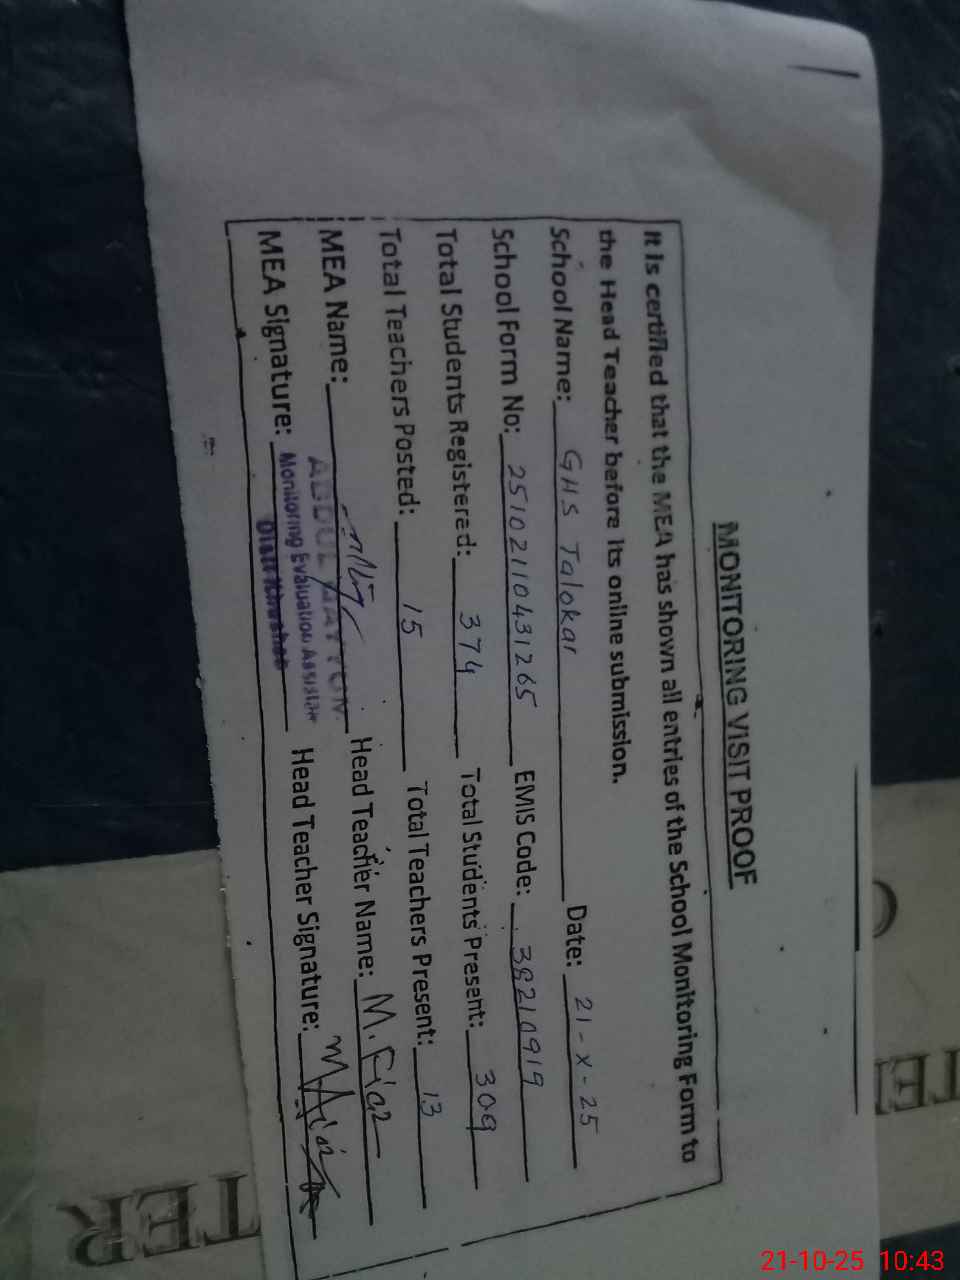 MONITORING VISIT PROOF
It is certified that the MEA has shown all entries of the School Monitoring Form to
the Head Teacher before its online submission.
School Name: GHS Talokar Date: 21-X-25
School Form No: 25102110431265 EMIS Code: 38210919
Total Students Registered: 374 Total Students Present: 309
Total Teachers Posted: 15 Total Teachers Present: 13
MEA Name: ABDUL Head Teacher Name: M.
MEA Signature: Monitoring Evaluation Assistant Head Teacher Signature:
TER
21-10-25 10:43